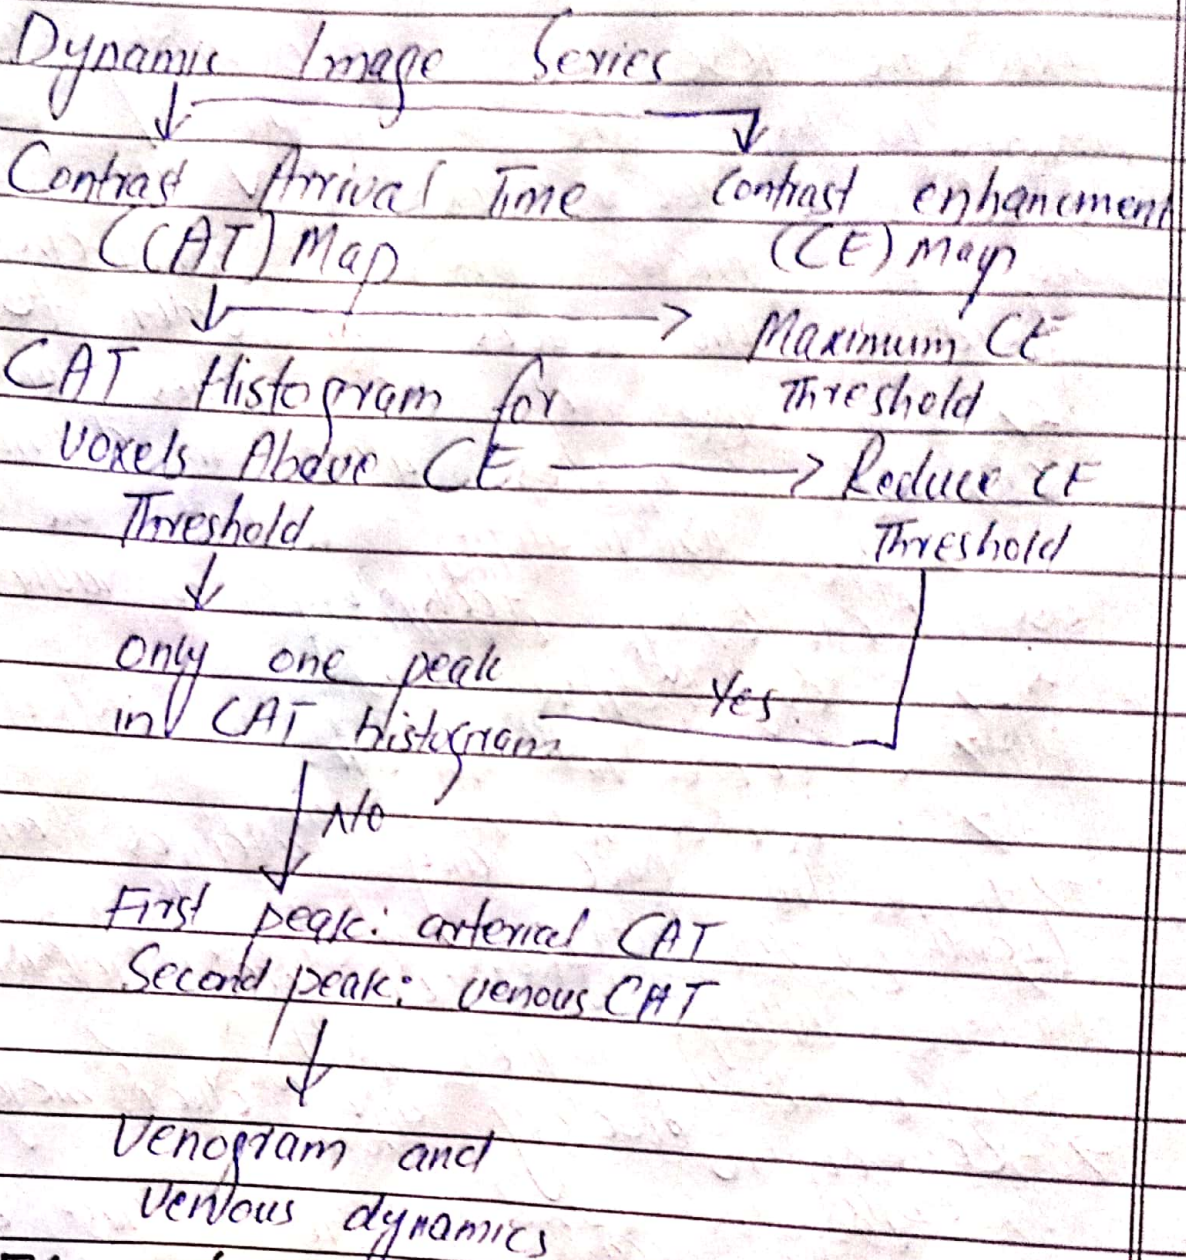 Dynamic Image Series
Contrast Arrival Time
(CAT) Map
Contrast enhancment
(CE) Map
Maximum CE
Threshold
CAT Histogram for
voxels Above CE
Threshold
Reduce CE
Threshold
only one peak
in CAT histogram
Yes
No
First peak: arterial CAT
Second peak: venous CAT
Venogram and
venous dynamics